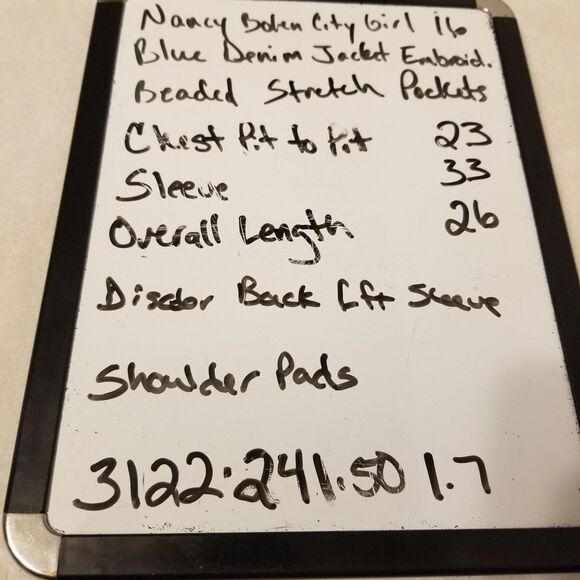 Nancy Bolen City Girl 16
Blue Denim Jacket Embroid.
Beaded Stretch Pockets
Chest Pit to Pit 23
Sleeve 33
Overall Length 26
Discolor Back Lft Sleeve
Shoulder Pads
3122.241.50 1.7